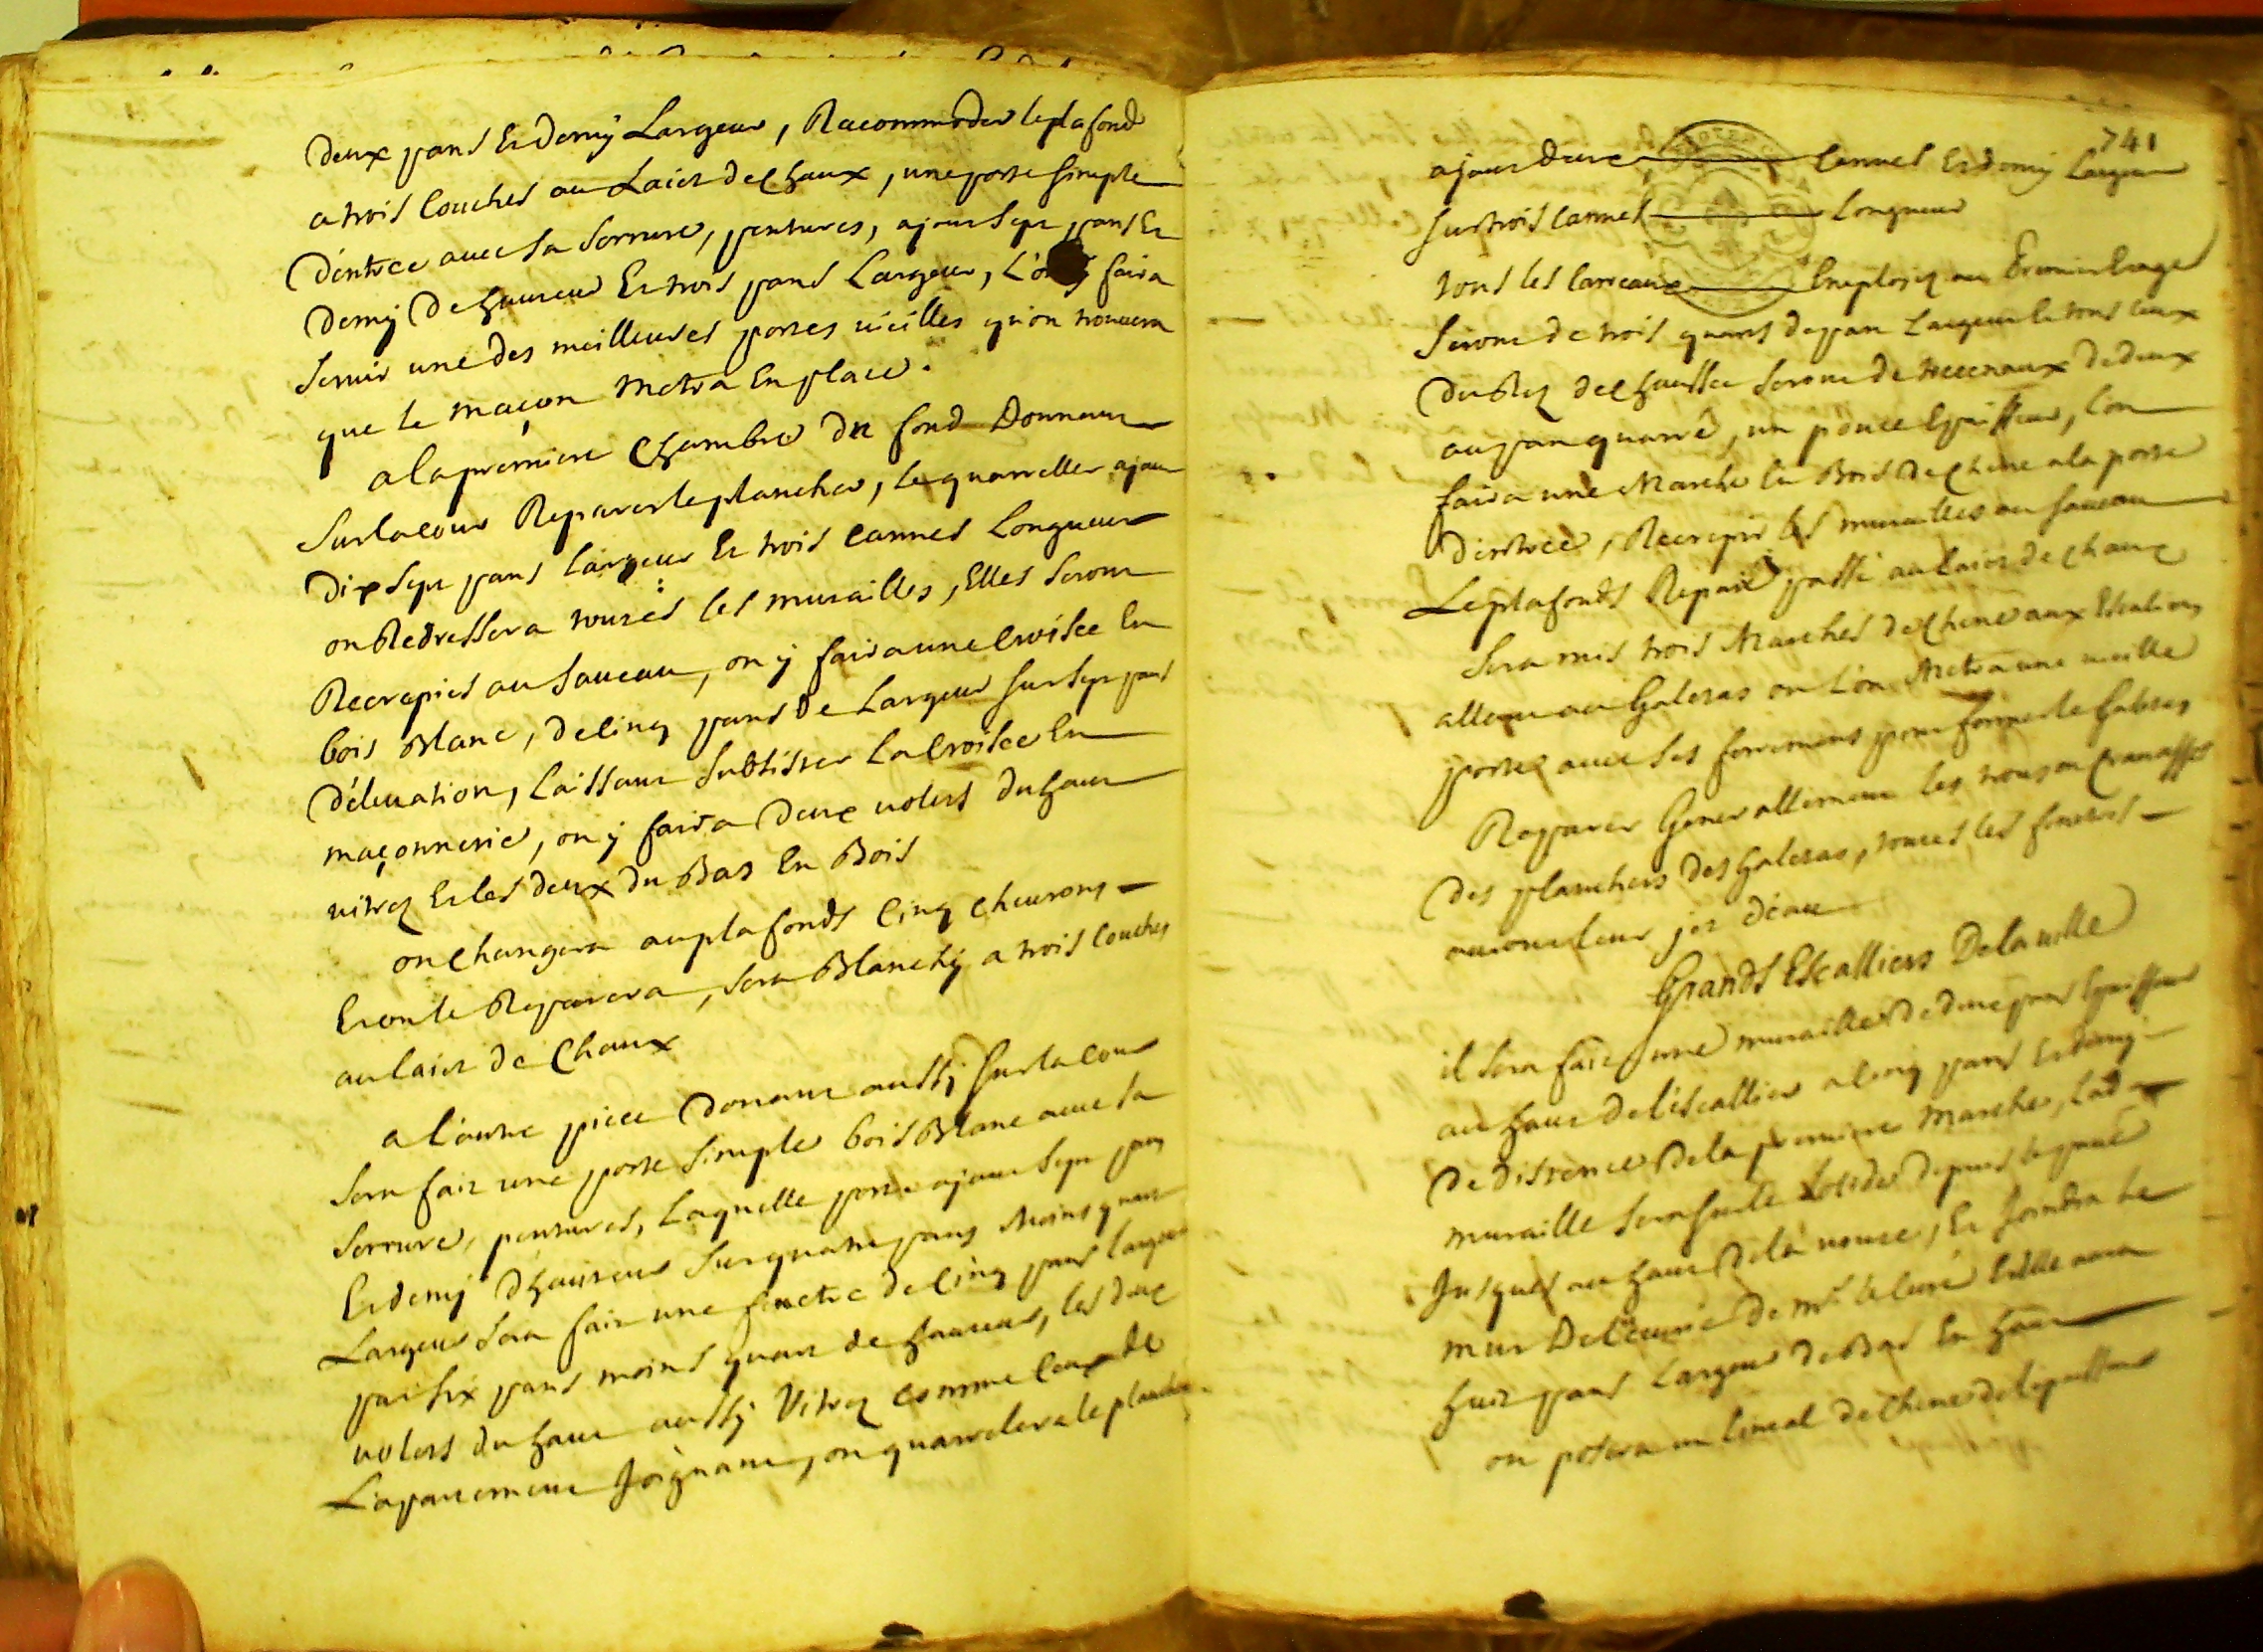 deux pans Et demÿ Largeur, Racommoder le plafond
a trois Couches au Laict de Chaux, une porte simple
d'éntrée avec sa serrure, pentures, ajour sept pans Et
demÿ De hauteur Et trois pans Largeur, L'on ÿ faira
servir une des meilleures portes vieilles qu'on trouvera
que le maçon metra En place.
a la premiere Chambre du fond Donnant
Sur la cour Reparer le plancher, Le quarreller ajour
Dix sept pans Largeur Et trois Cannes Longueur
on Redressera toutes les murailles, Elles seront
Recrepies au Sauceau, on ÿ faira une Croisée En
bois Blanc, de Cinq pans De Largeur sur sept pans
d'élevation, Laissant subsister La Croisée En
maçonnerie, on ÿ faira deux volets du haut
vitrez Et les deux du Bas En Bois
on Changera au plafonds Cinq Chevrons
Et on le Reparera, sera Blanchÿ a trois Couches
au laict de Chaux
a l'autre piece donant aussÿ sur la cour
sera fait une porte simple bois Blanc avec sa
serrure, pentures, Laquelle porte ajour sept pans
Et demÿ d'hauteur sur quatre pans moins quart
Largeur sera fait une fenetre de Cinq pans largeur
par six pans moins quart de hauteur, les deux
volets du haut aussÿ Vitrez comme Ceux de
L'apartement Joignant, on quarrelera le plancher
741
ajour deux Cannes Et demÿ Largeur
sur trois Cannes Longueur
tous les Carreaux Emploiez au
Seront de trois quarts de pan Largeur Et tous Ceux
du Rez de Chaussée seront de de deux
au pan quarré, un pouce Epaisseur, L'on
faira une Marche En Bois de Chene a la porte
d'entrée, Recrepir les murailles au Sauceau
Le plafonds Reparé passé au Laict de Chaux
Sera mis trois Marches de Chene aux Escaliers
allant au Galetas ou L'on Metra une vieille
porte avec ses ferremens pour fermer le Galetas
Reparer Generallement les trous ou Crevasses
des planchers des Galetas, toutes les fenetres
auront leur jet d'éau
Grands Escalliers De la ville
il sera fait une muraille de deux pans Epaisseur
au haut de L'éscallier a Cinq pans Et demÿ
De distance De la premiere Marche, Lad
muraille sera solide depuis le pavé
Jusques au haut De la voute, Et Joindra Le
mur De L'écurie de mr. le Curé Et Elle aura
huit pans Largeur De Bas En haut
on posera un Linteal de Chene de L'épaisseur